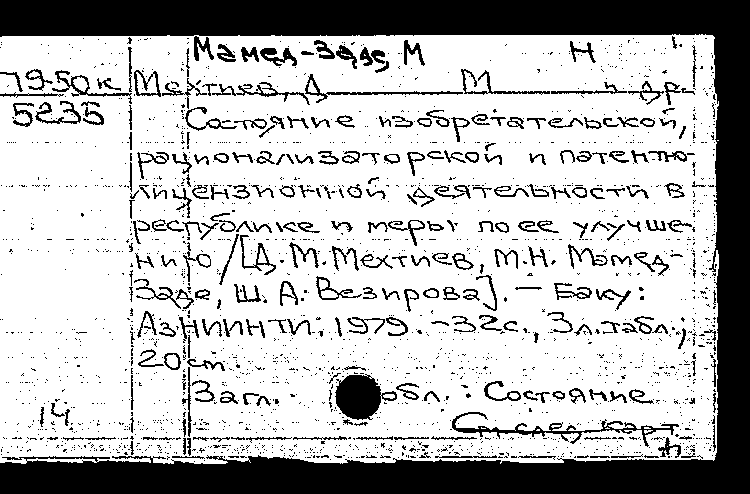 Мамед-Заде, М Н
79-50к Мехтиев, Д М и др.
5235 Состояние изобретательской,
рационализаторской и патентно-
лицензионной деятельности в
республике и меры по ее улучше-
нию / [Д. М. Мехтиев, М.Н. Мамед-
Заде, Ш. А. Везирова]. — Баку:
АзНИИНТИ, 1979. - 32с., 3л.табл.;
20 см.
Загл. обл.: Состояние
14
См след карт